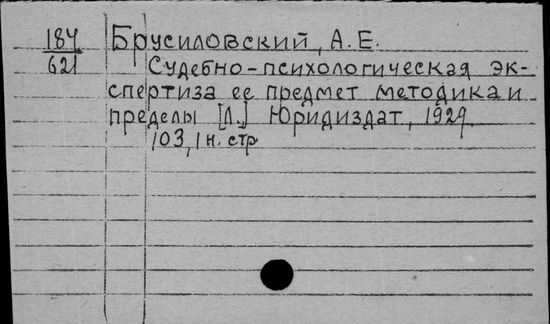 184 Брусиловский, А.Е.
621 Судебно-психологическая эк-
спертиза ее предмет методика и
пределы [Л.] Юридиздат, 1929.
103, 1 н. стр